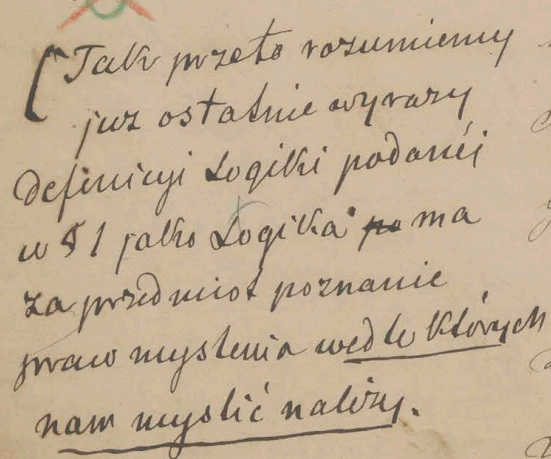 [Tak przeto rozumiemy
już ostatnie wyrazy
definicyi Logiki podanéj
w § 1 jako Logika po ma
za przedmiot poznanie
praw myslenia wedle których
nam myslić należy.